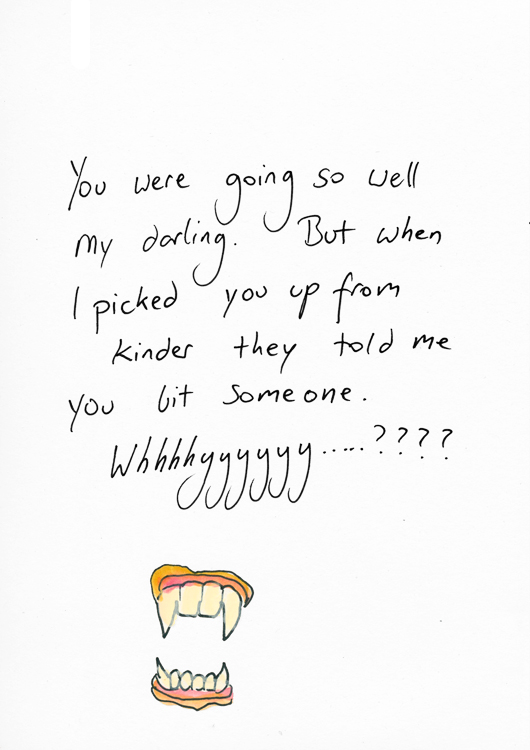 You were going so well
my darling. But when
I picked you up from
kinder they told me
you bit someone.
Whhhhyyyyyy.....????